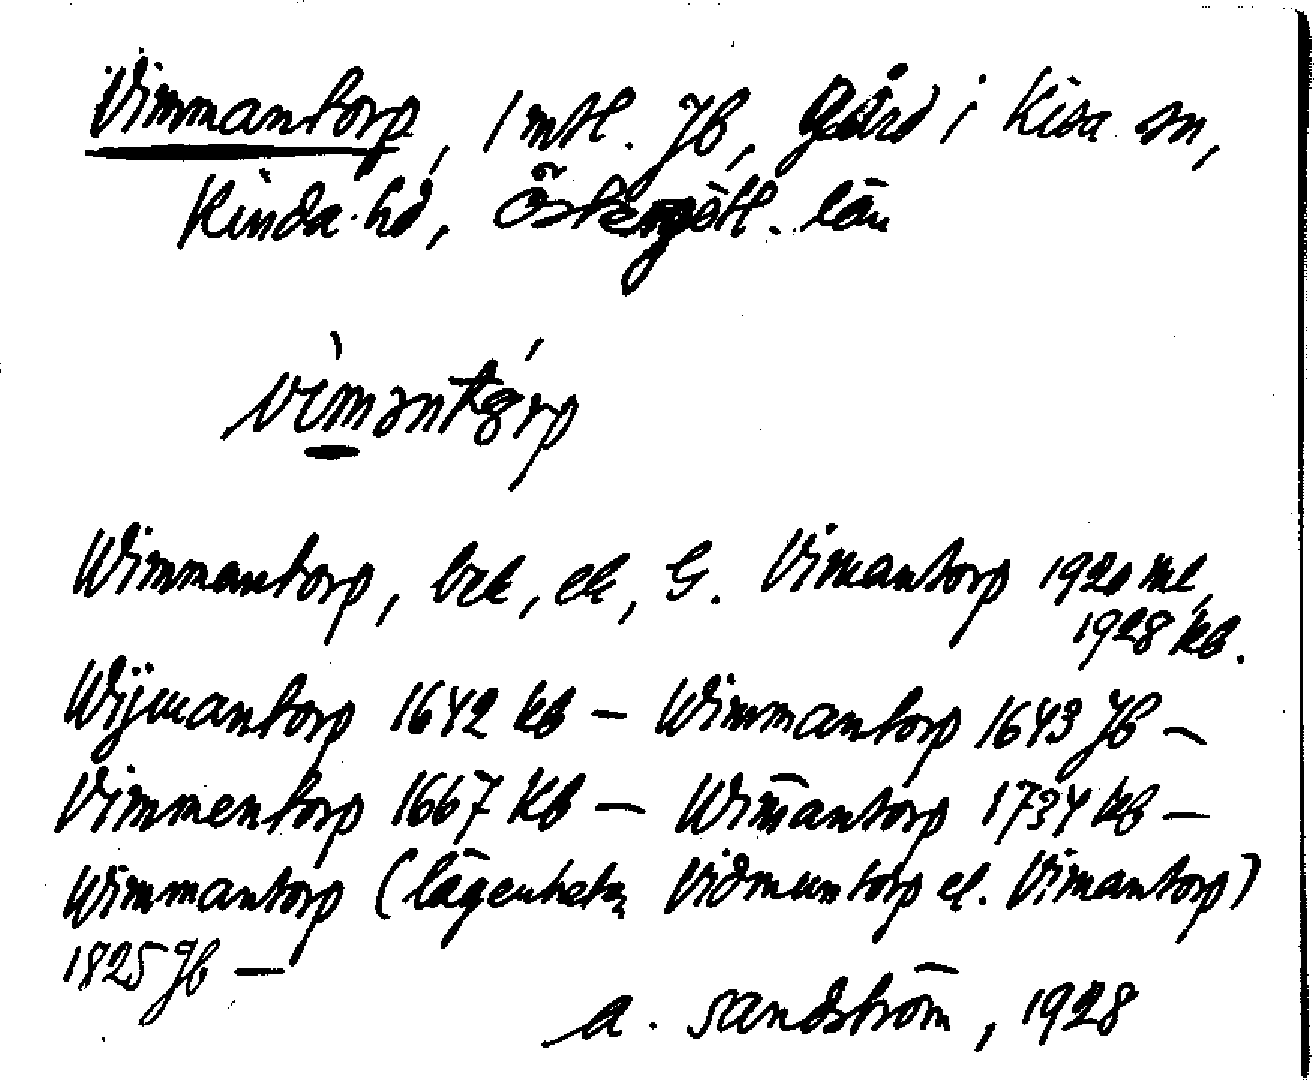 Vimmantorp, 1 mtl. Jb, Gård i Kisa sn,
Kinda hd, Östergötl. län
vìmantórp
Wimmantorp, bek, ek, G. Vimantorp 1920 ml,
1928 kb.
Wijmantorp 1642 kb — Wimmantorp 1643 Jb —
Vimmentorp 1667 Kb — Wim̄antorp 1734 kb —
Wimmantorp (lägenheten Vidmuntorp el. Vimantorp)
1825 Jb —
A. Sandström, 1928